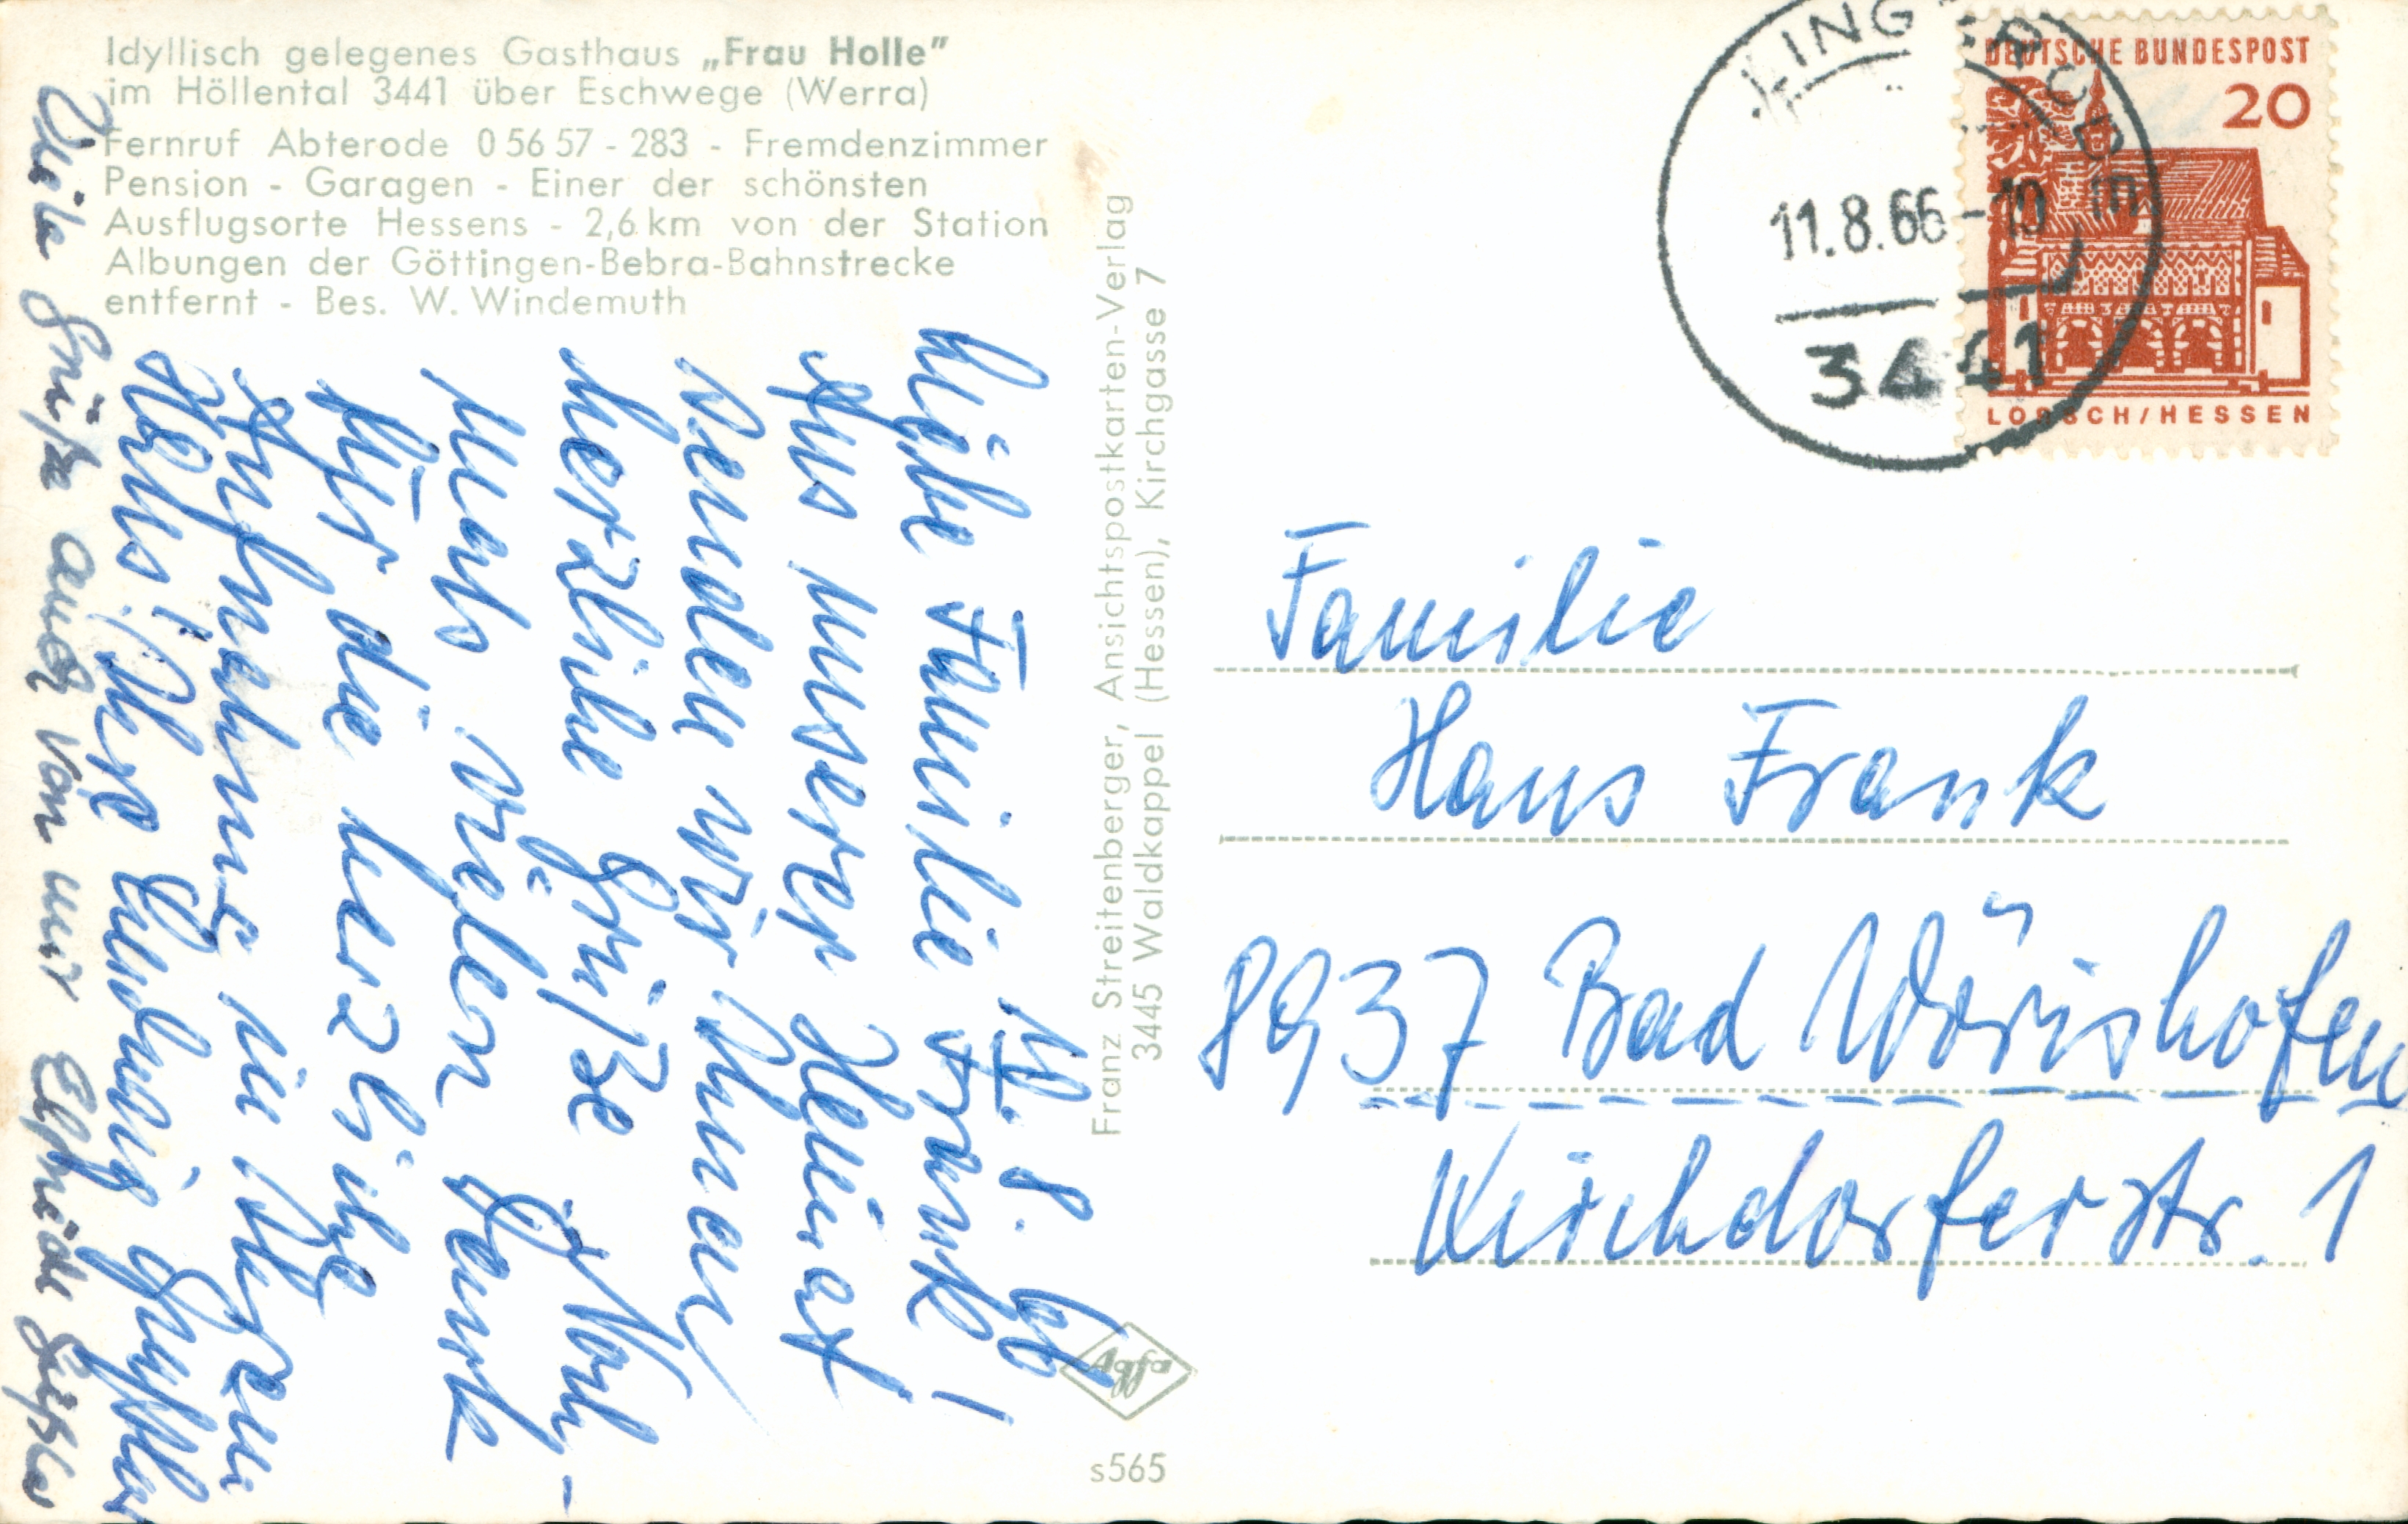 Idyllisch gelegenes Gasthaus „Frau Holle”
im Höllental 3441 über Eschwege (Werra)
Fernruf Abterode 0 56 57 - 283 - Fremdenzimmer
Pension - Garagen - Einer der schönsten
Ausflugsorte Hessens - 2,6 km von der Station
Albungen der Göttingen-Bebra-Bahnstrecke
entfernt - Bes. W. Windemuth
8. 66
Liebe Familie Frank!
Aus unserer Heimat
senden wir Ihnen
herzliche Grüße. Noch-
mals vielen Dank
für die herzliche
Aufnahme in Ihrem
Haus! Ihre
Viele Grüße auch von mir Elfriede
Franz Streitenberger, Ansichtspostkarten-Verlag
3445 Waldkappel (Hessen), Kirchgasse 7
Agfa
s565
11.8.66-10
3441
DEUTSCHE BUNDESPOST
20
LORSCH/HESSEN
Familie
Hans Frank
8937 Bad Wörishofen
Kirchdorferstr. 1